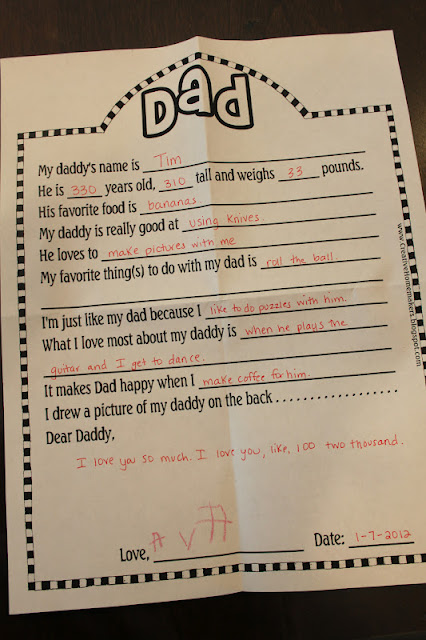 Dad
My daddy's name is Tim
He is 330 years old, 310 tall and weighs 33 pounds.
His favorite food is bananas
My daddy is really good at using knives.
He loves to make pictures with me
My favorite thing(s) to do with my dad is roll the ball.
I'm just like my dad because I like to do puzzles with him.
What I love most about my daddy is when he plays the
guitar and I get to dance.
It makes Dad happy when I make coffee for him.
I drew a picture of my daddy on the back . . . . . . . . . . . . . . . . . .
Dear Daddy,
I love you so much. I love you, like, 100 two thousand.
Love, Date: 1-7-2012
www.CreativeHomemakers.blogspot.com